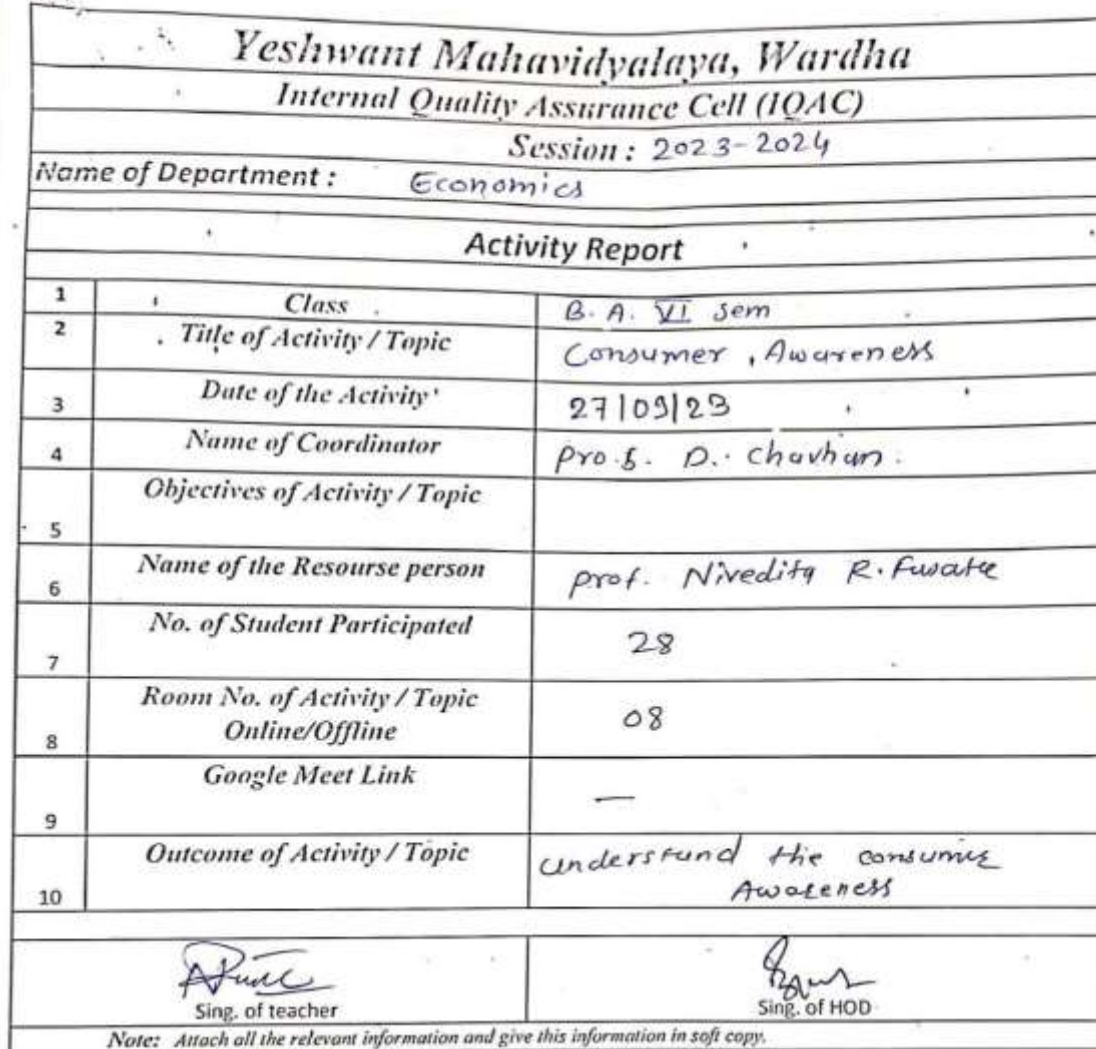 Yeshwant Mahavidyalaya, Wardha
Internal Quality Assurance Cell (IQAC)
Session : 2023-2024
Name of Department : Economics
Activity Report
1 Class B. A. VI sem
2 Title of Activity / Topic Consumer , Awareness
3 Date of the Activity 27/09/23
4 Name of Coordinator Prof. D. Chavhan.
Objectives of Activity / Topic
5
6 Name of the Resourse person prof. Nivedita R.
7 No. of Student Participated 28
Room No. of Activity / Topic
8 Online/Offline 08
9 Google Meet Link —
10 Outcome of Activity / Topic understand the
Awareness
Sing. of teacher Sing. of HOD
Note: Attach all the relevant information and give this information in soft copy.